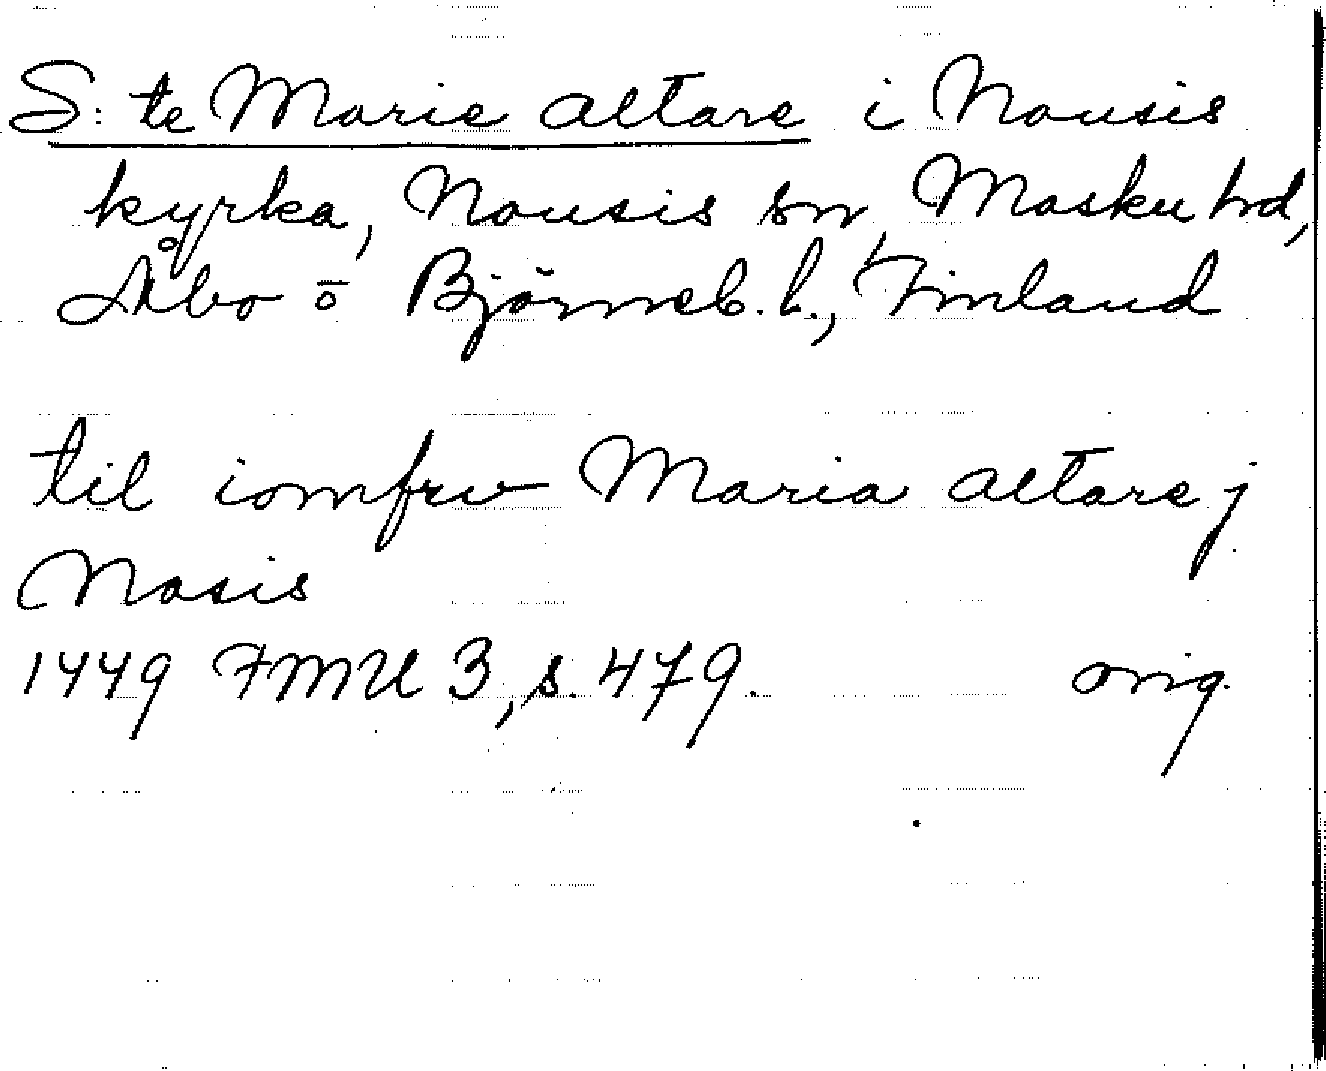 S:te Marie altare i Nousis
kyrka, Nousis sn, Masku hd,
Åbo o Björneb. l., Finland
til iomfrv Maria altare j
Nosis
1449 FMU 3, s. 479. orig.